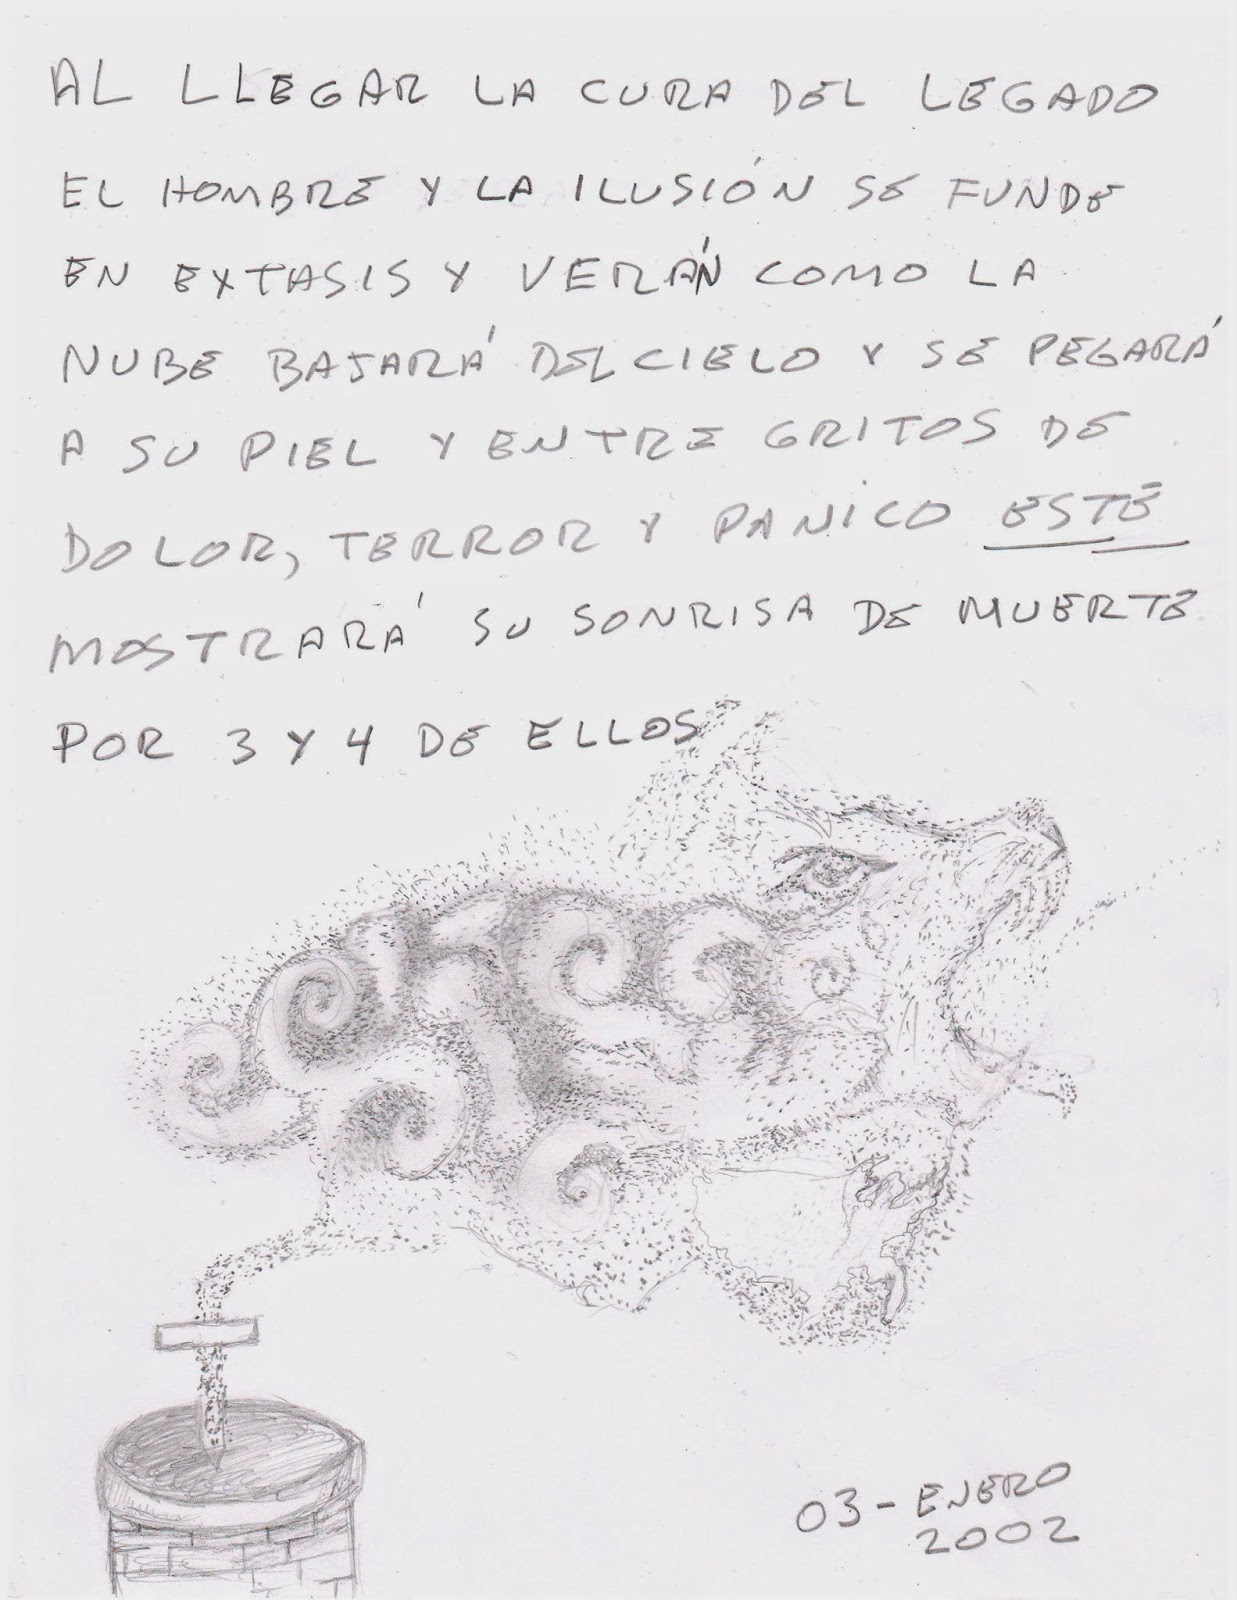 AL LLEGAR LA CURA DEL LEGADO
EL HOMBRE Y LA ILUSIÓN SE FUNDE
EN EXTASIS Y VERÁN COMO LA
NUBE BAJARÁ DEL CIELO Y SE PEGARÁ
A SU PIEL Y ENTRE GRITOS DE
DOLOR, TERROR Y PANICO ESTE
MOSTRARÁ SU SONRISA DE MUERTE
POR 3 Y 4 DE ELLOS
03-ENERO
2002